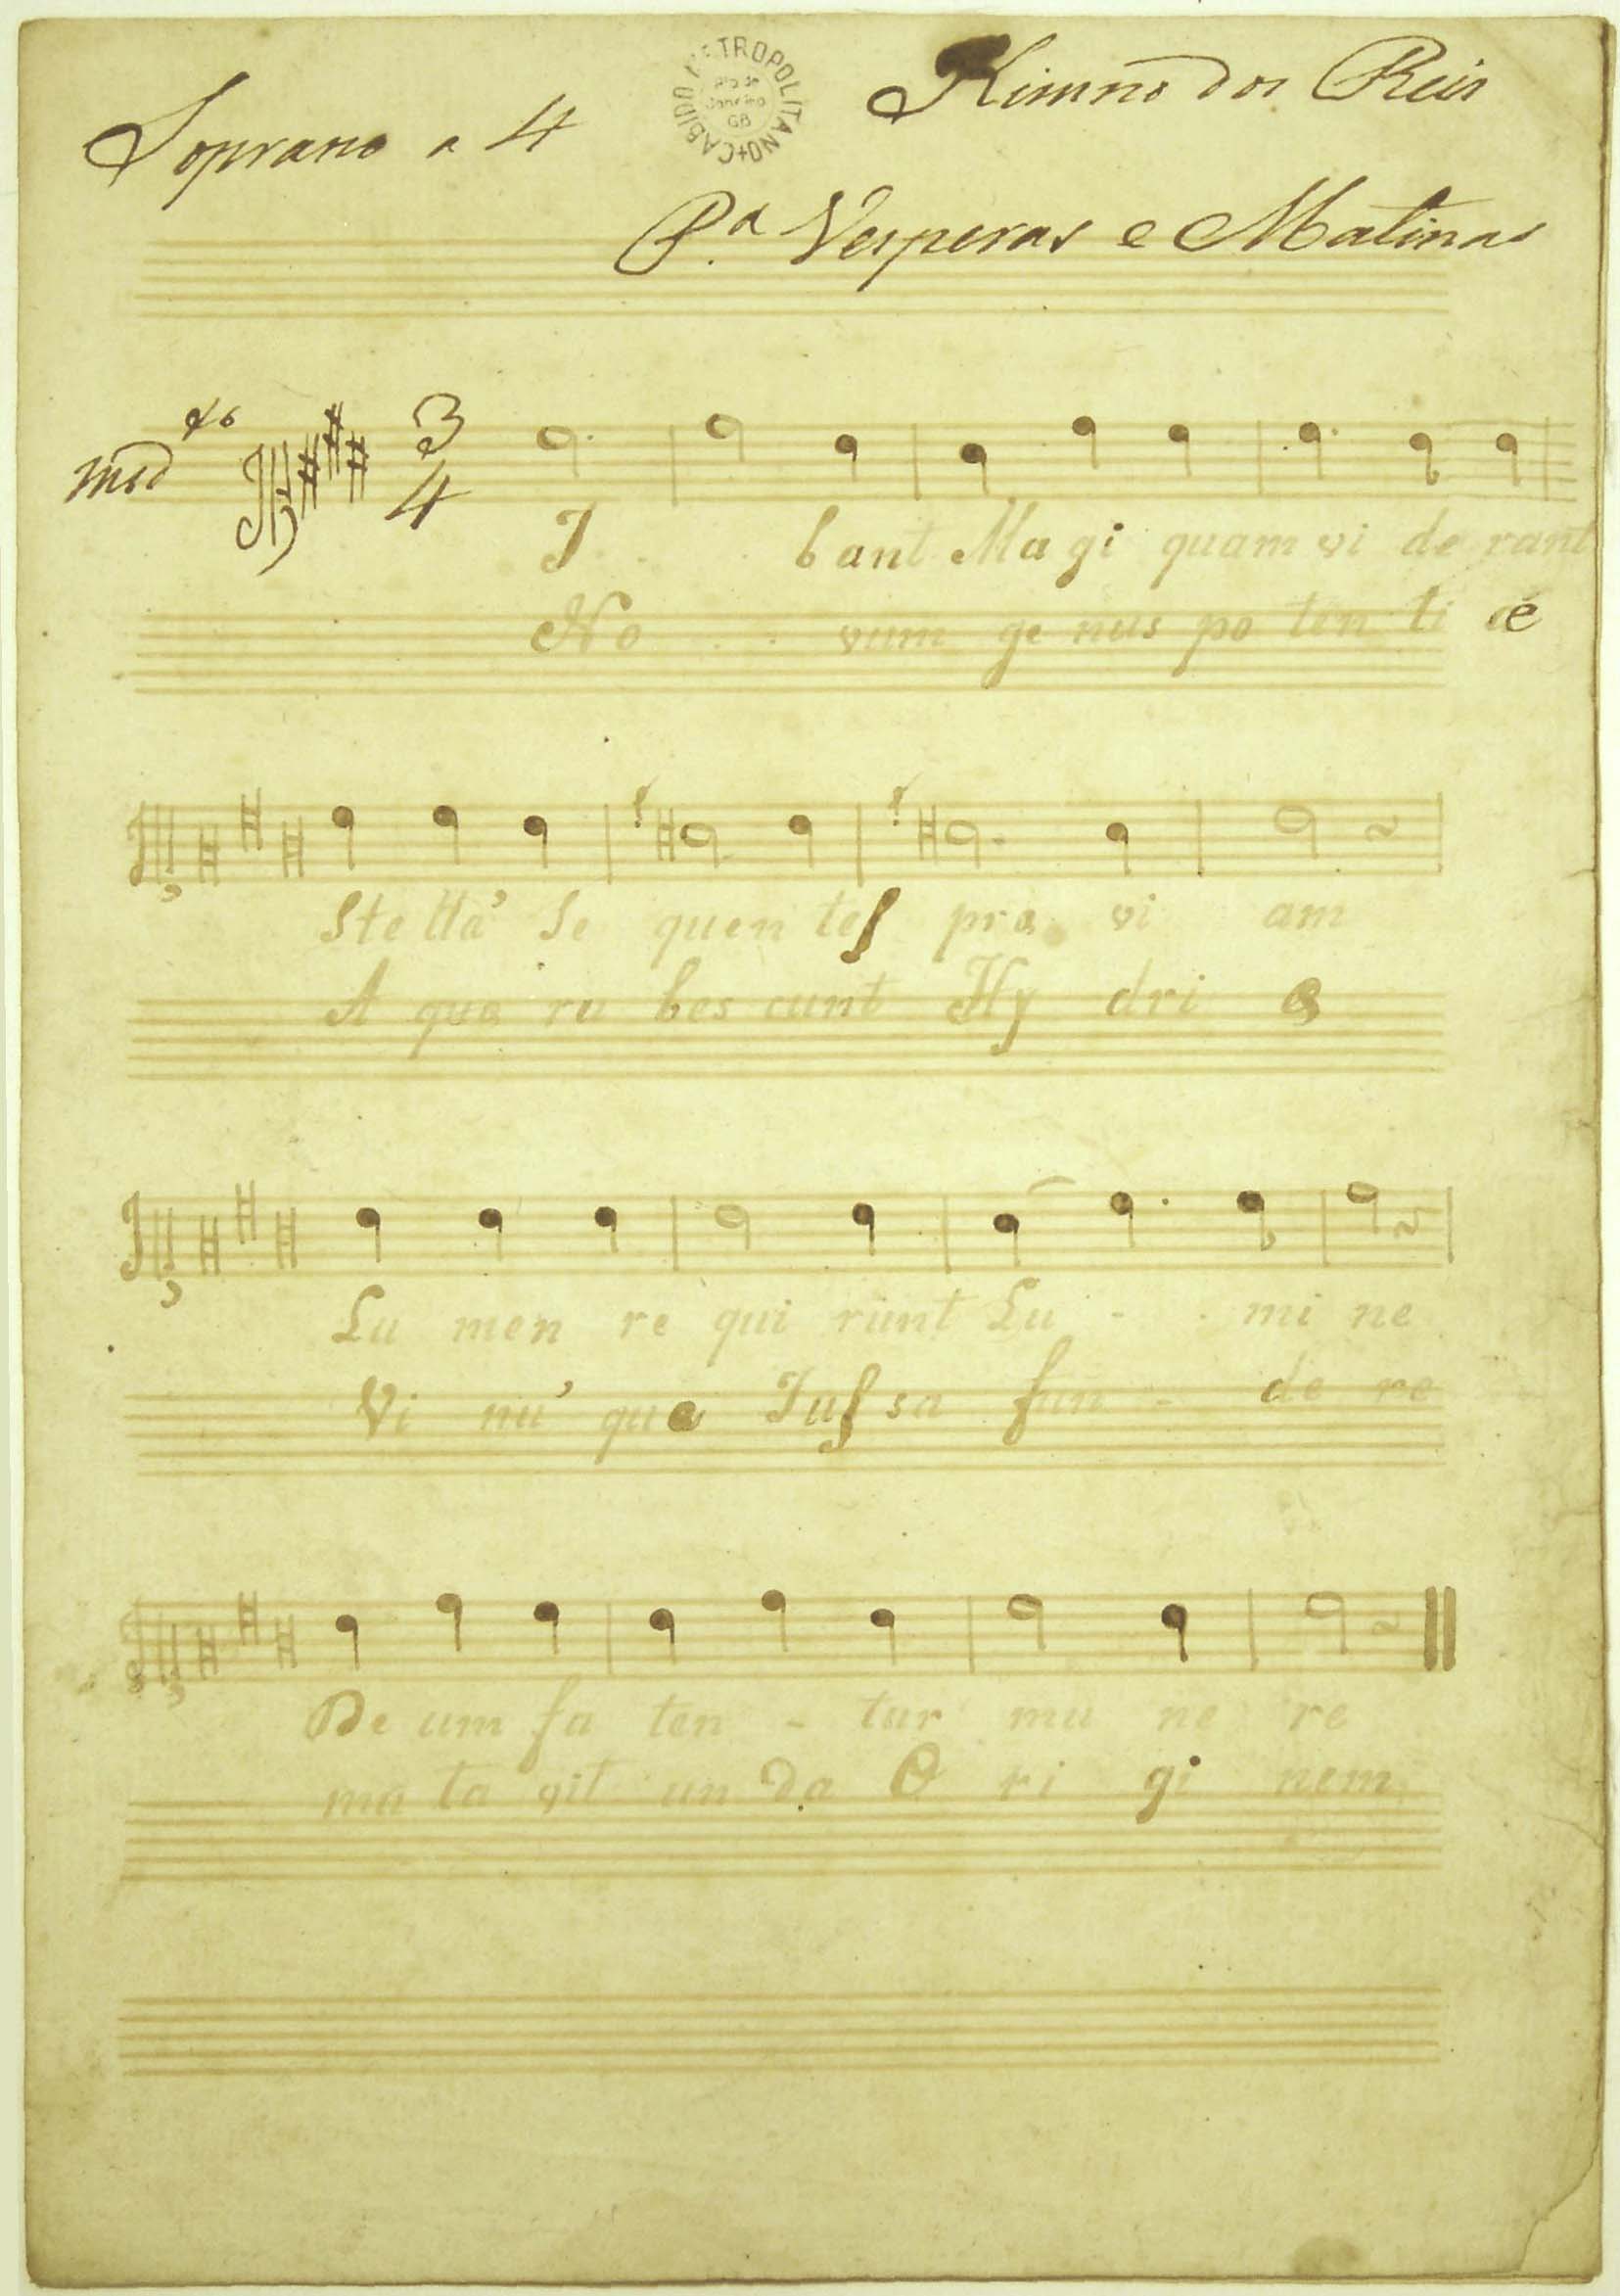 CABIDO METROPOLITANO + Rio de Janeiro GB
Himno dos Reis
Soprano a 4
P.ª Vesperas e Matinas
mod
to
3
4
I . . . bant Ma gi quam vi de rant
No . . vum ge nus po ten ti æ
Ste lla' Se quen tes pra vi am
A qua ru bes cunt Hy dri e
Lu men re qui runt Lu - - mi ne
Vi nu' que Jus sa fun - de re
De um fa ten - tur mu ne re
mu ta vit un da O ri gi nem